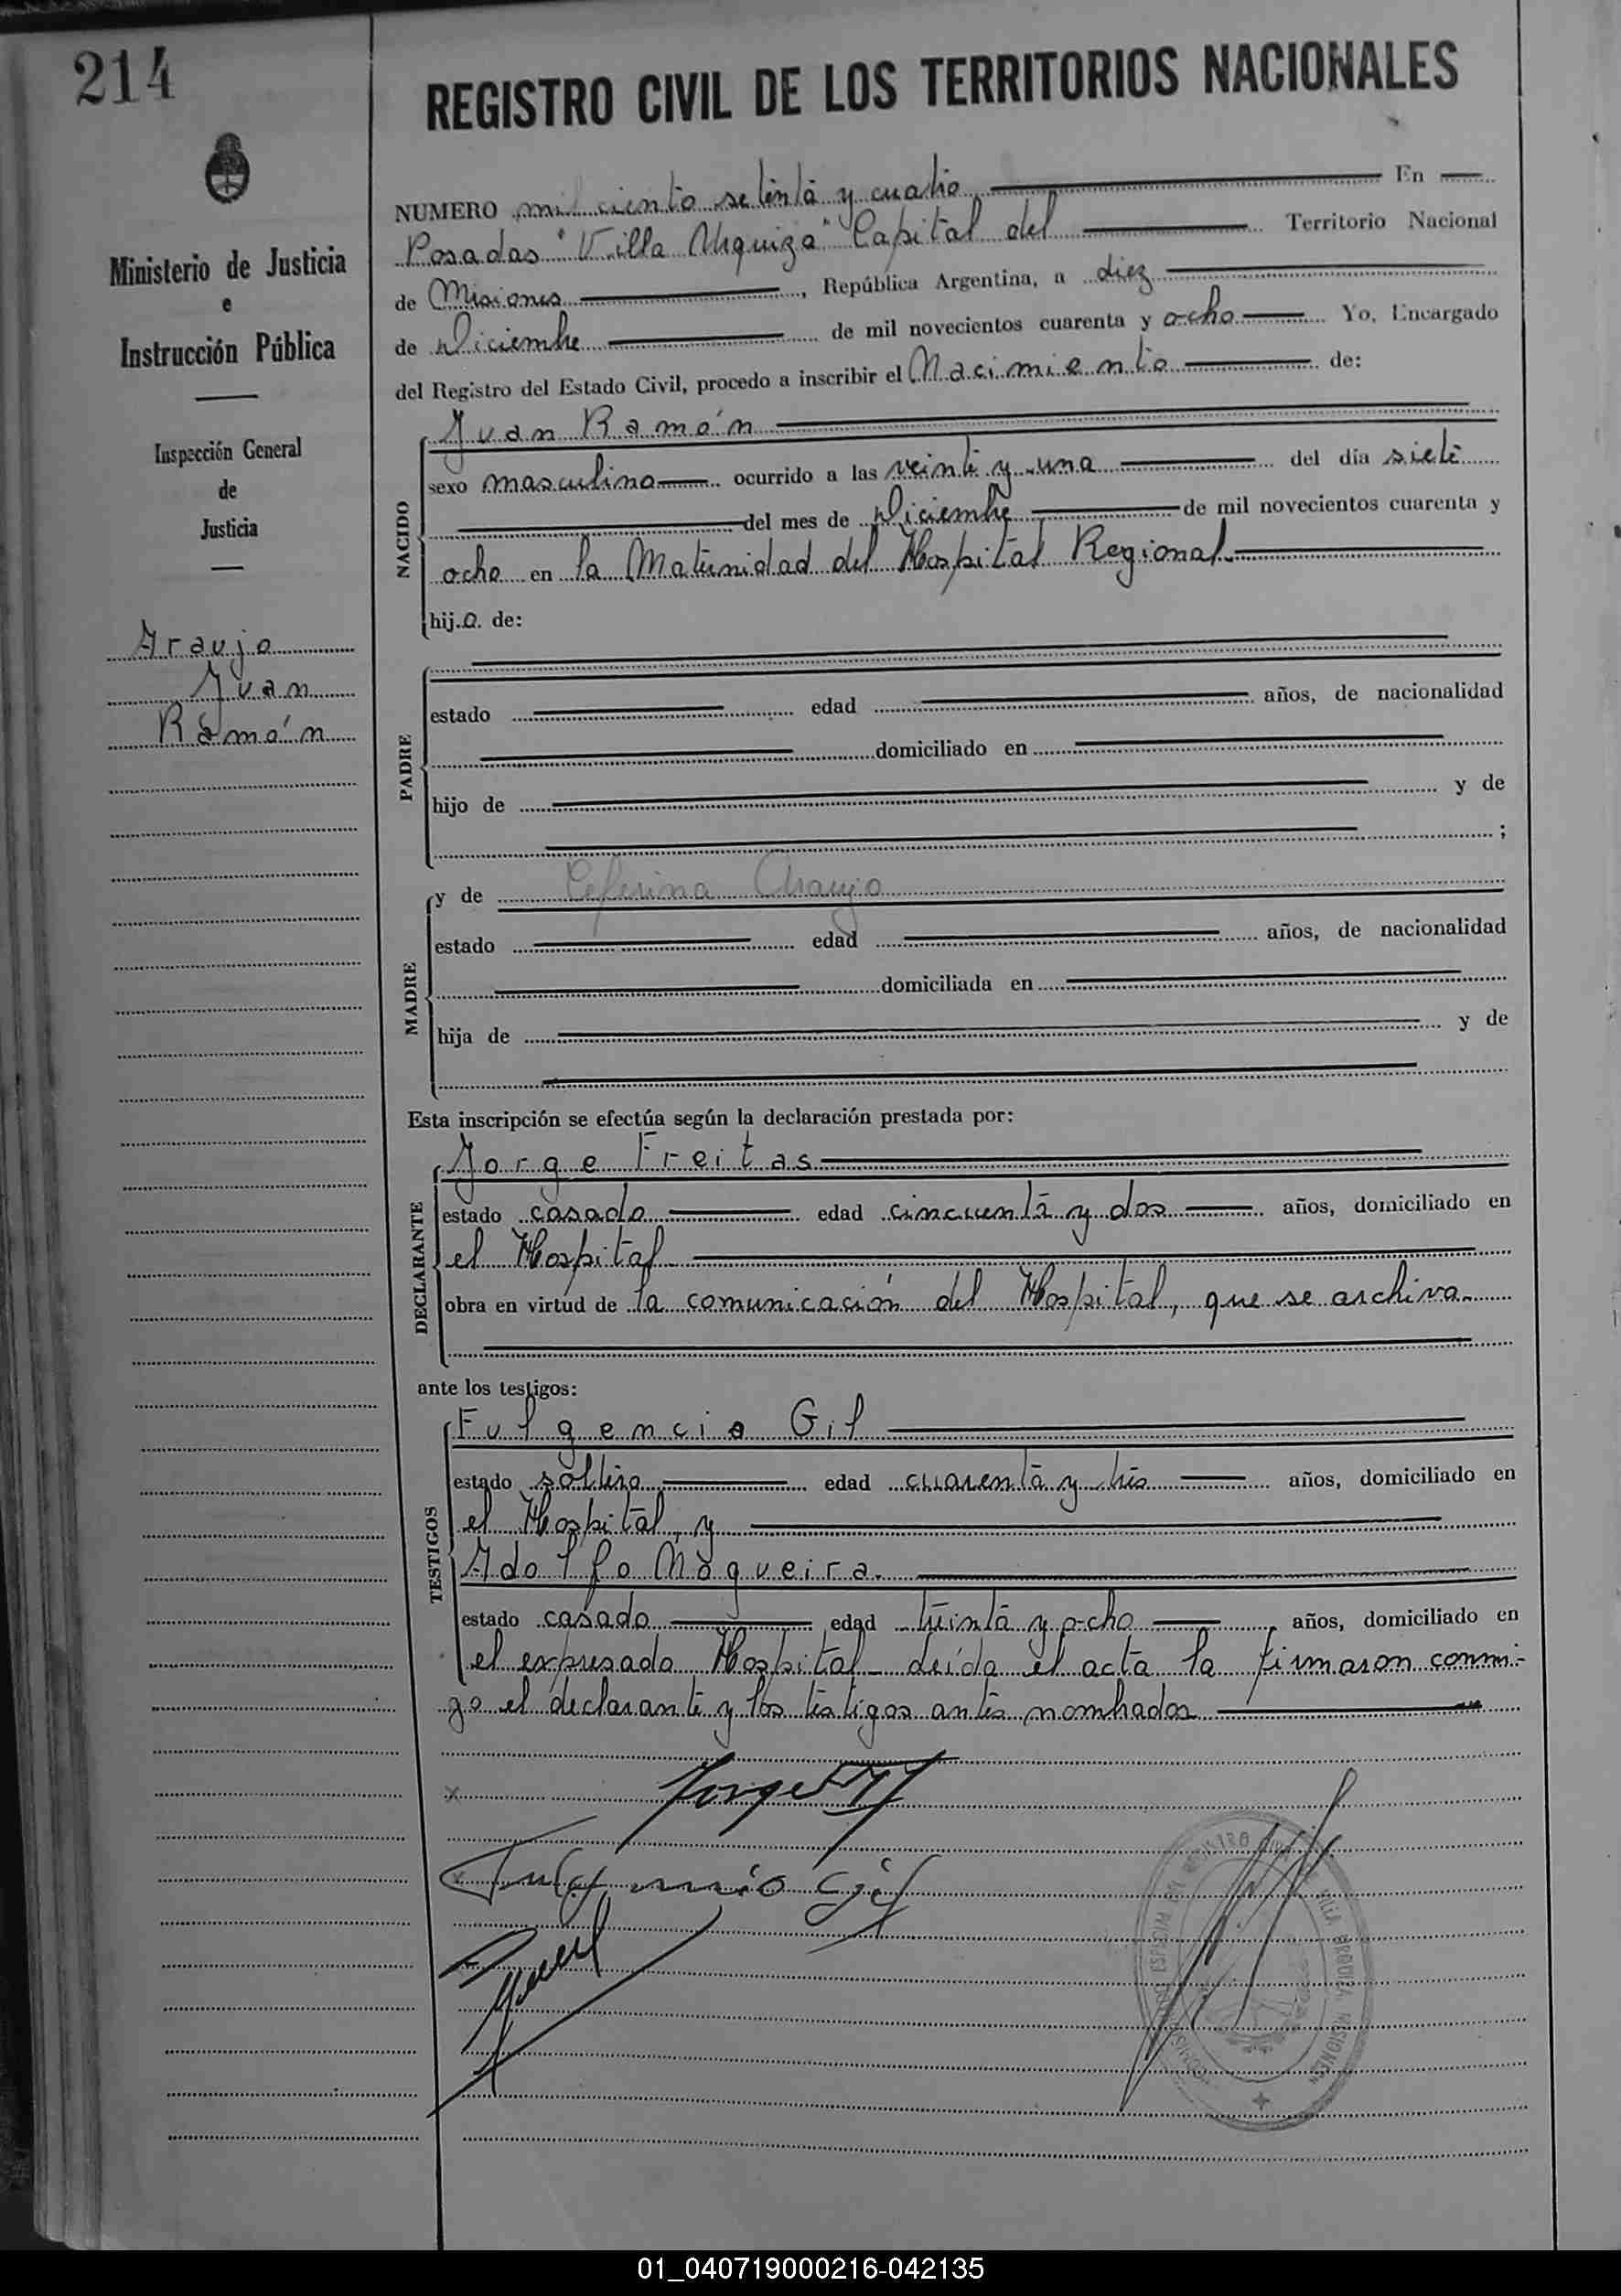 214
REGISTRO CIVIL DE LOS TERRITORIOS NACIONALES
Ministerio de Justicia
e
Instrucción Pública
Inspección General
de
Justicia
Araujo
Juan
Ramón
NUMERO mil ciento setenta y cuatro En
Posadas "Villa Urquiza" Capital del Territorio Nacional
de Misiones, República Argentina, a diez
de Diciembre de mil novecientos cuarenta y ocho Yo, Encargado
del Registro del Estado Civil, procedo a inscribir el Nacimiento de:
NACIDO
Juan Ramón
sexo masculino ocurrido a las veinte y una del día siete
del mes de Diciembre de mil novecientos cuarenta y
ocho en la Maternidad del Hospital Regional
hijo de:
PADRE
estado edad años, de nacionalidad
domiciliado en
hijo de y de
;
MADRE
y de Ceferina Araujo
estado edad años, de nacionalidad
domiciliada en
hija de y de
Esta inscripción se efectúa según la declaración prestada por:
DECLARANTE
Jorge Freitas
estado casado edad cincuenta y dos años, domiciliado en
el Hospital
obra en virtud de la comunicación del Hospital, que se archiva
ante los testigos:
TESTIGOS
Fulgencio Gil
estado soltero edad cuarenta y tres años, domiciliado en
el Hospital, y
Adolfo Noqueira
estado casado edad treinta y ocho años, domiciliado en
el expresado Hospital - Leída el acta la firmaron conmi-
go el declarante y los testigos antes nombrados
Jorge
Fulgencio Gil
REGISTRO CIVIL VILLA URQUIZA MISIONES
01_040719000216-042135